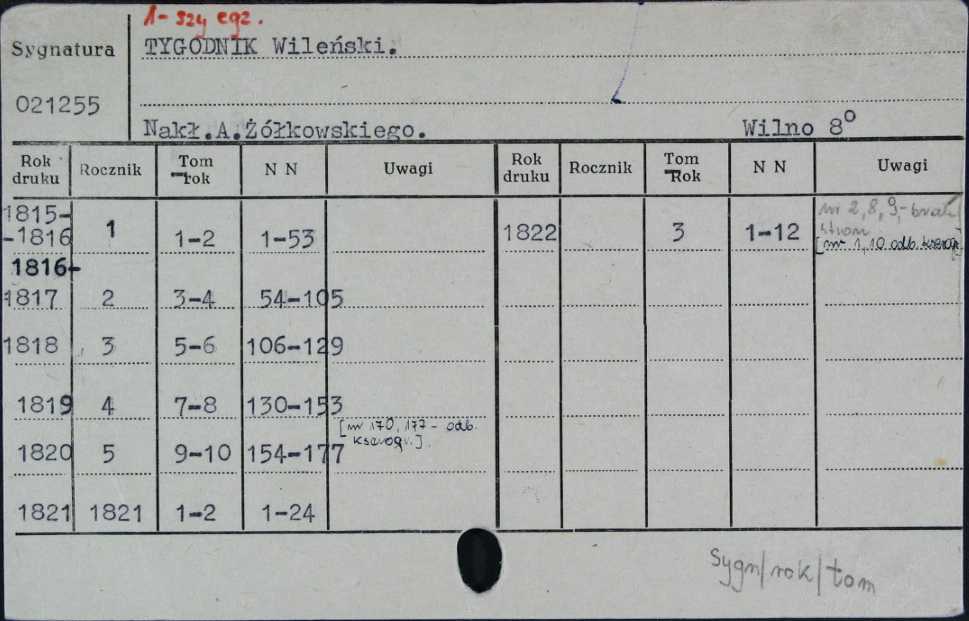 1-szy egz.
Sygnatura
TYGODNIK Wileński.
021255
Nakł.A.Żółkowskiego. Wilno 8°
Rok druku Rocznik Tom rok N N Uwagi Rok druku Rocznik Tom Rok N N Uwagi
1815-
-1816 1 1-2 1-53 1822 3 1-12 nr 2, 8, 9,- brak stron
[nr 1, 10 odb. kserogr.]
1816-
1817 2 3-4 54-105
1818 3 5-6 106-129
1819 4 7-8 130-153
[nr 170, 177 - odb.
kserogr.]
1820 5 9-10 154-177
1821 1821 1-2 1-24
Sygn/rok/tom